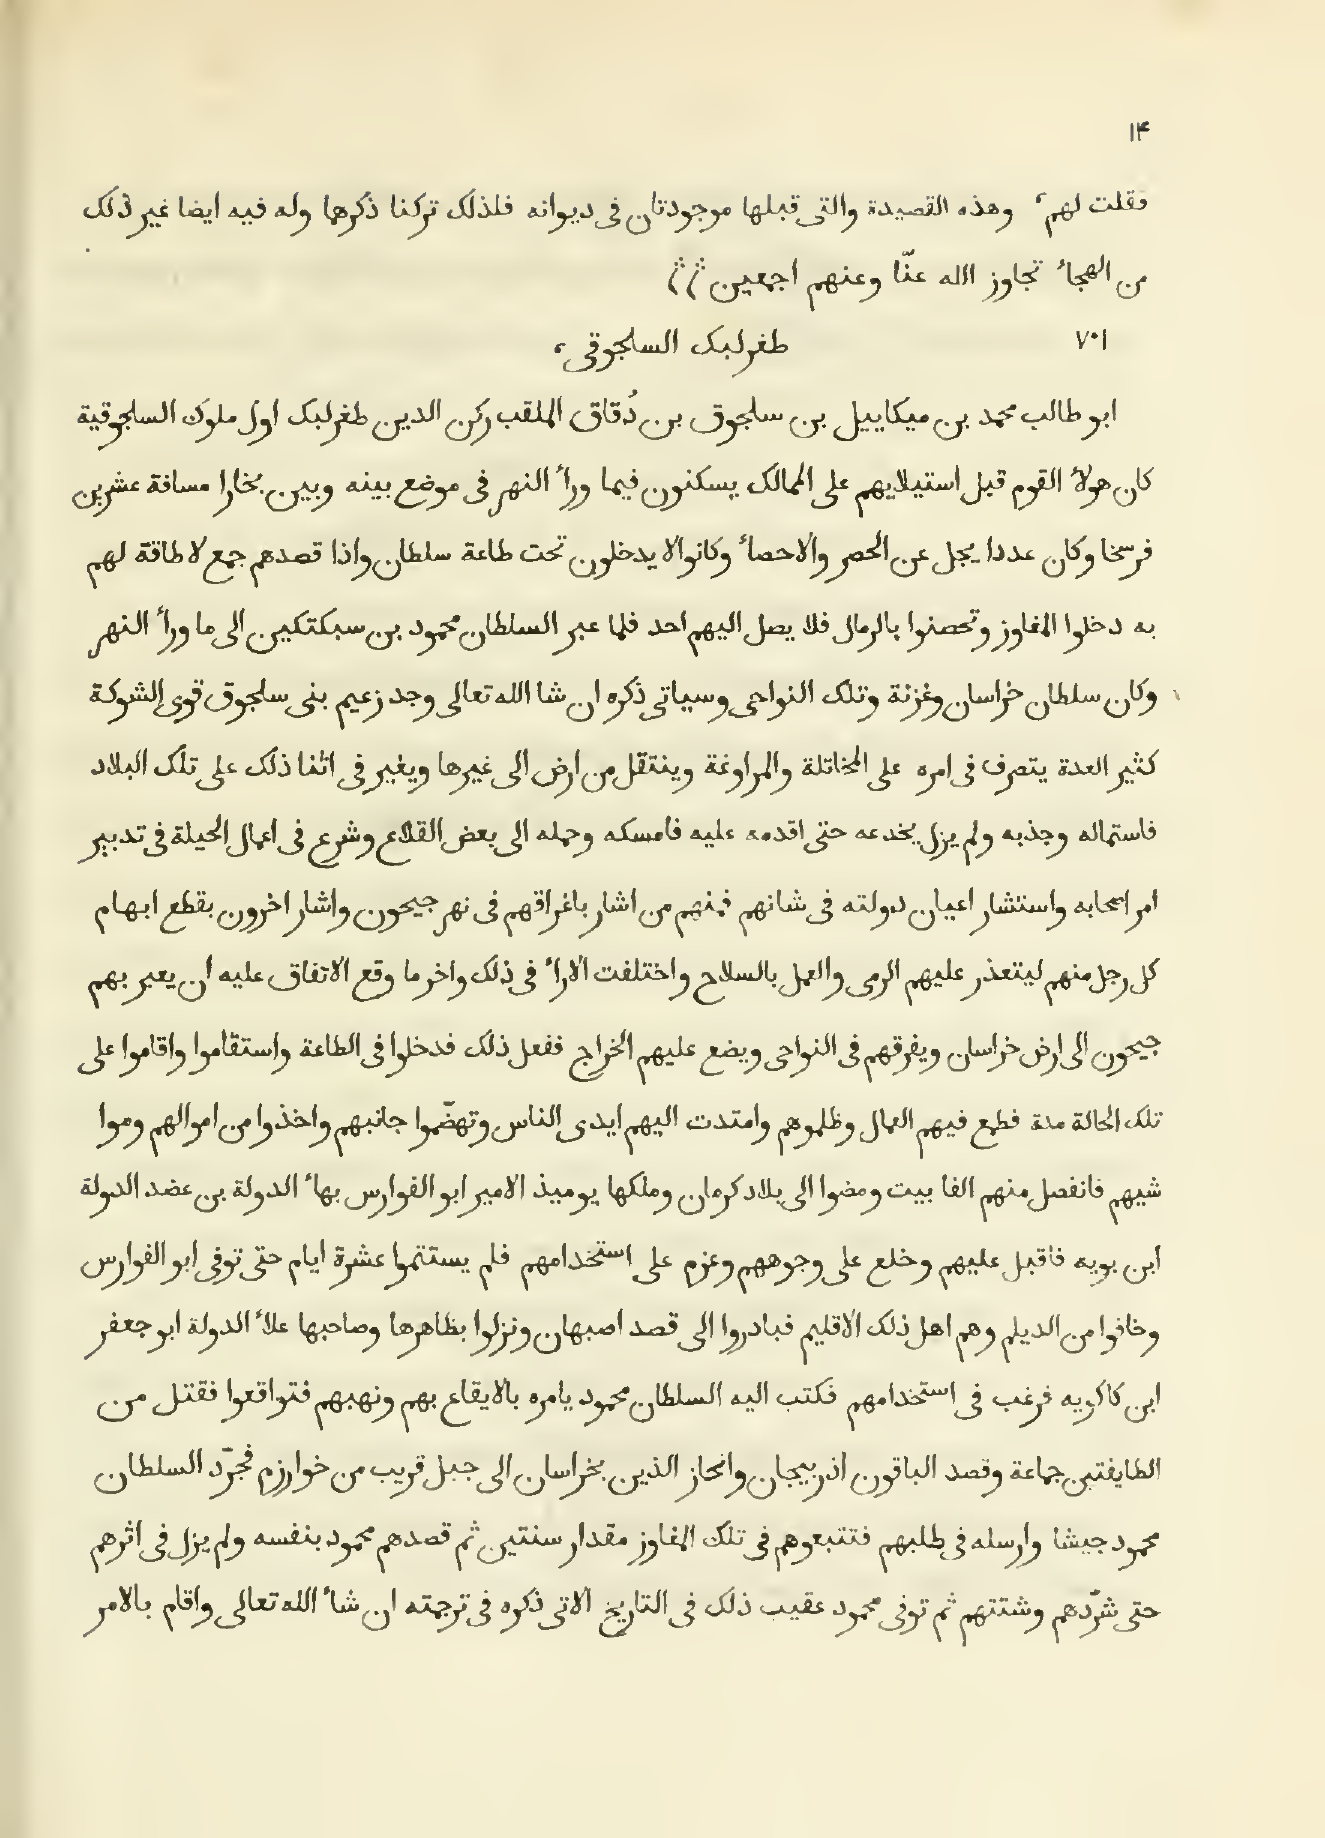 ١۴
فقلت لهم ٬ وهذه القصيدة والتى قبلها موجودتان فى ديوانه فلذلك تركنا ذكرها وله فيه ايضا غير ذلك
من الهجاء تجاوز الله عنّا وعنهم اجمعين
٧٠١
طغرلبك السلجوقى ٬
ابو طالب محمد بن ميكاييل بن سلجوق بن دُقاق الملقب ركن الدين طغرلبك اول ملوك السلجوقية
كان هولاء القوم قبل استيلايهم على الممالك يسكنون فيما وراء النهر فى موضع بينه وبين بخارا مسافة عشرين
فرسخا وكان عددا يجل عن الحصر والاحصاء وكانوا لا يدخلون تحت طاعة سلطان واذا قصدهم جمع لا طاقة لهم
به دخلوا المفاوز وتحصنوا بالرمال فلا يصل اليهم احد فلما عبر السلطان محمود بن سبكتكين الى ما وراء النهر
وكان سلطان خراسان وغزنة وتلك النواحى وسياتى ذكره ان شا الله تعالى وجد زعيم بنى سلجوق قوى الشوكة
كثير العدة يتصرف فى امره على المخاتلة والمراوغة وينتقل من ارض الى غيرها ويغير فى اثنا ذلك على تلك البلاد
فاستماله وجذبه ولم يزل يخدعه حتى اقدمه عليه فامسكه وحمله الى بعض القلاع وشرع فى اعمال الحيلة فى تدبير
امر اصحابه واستشار اعيان دولته فى شانهم فمنهم من اشار باغراقهم فى نهر جيحون واشار اخرون بقطع ابهام
كل رجل منهم ليتعذر عليهم الرمى والعمل بالسلاح واختلفت الاراء فى ذلك واخر ما وقع الاتفاق عليه ان يعبر بهم
جيحون الى ارض خراسان ويفرقهم فى النواحى ويضع عليهم الخراج ففعل ذلك فدخلوا فى الطاعة واستقاموا واقاموا على
تلك الحالة مدة فطمع فيهم العمال وظلموهم وامتدت اليهم ايدى الناس وتهضّموا جانبهم واخذوا من اموالهم وموا
شيهم فانفصل منهم الفا بيت ومضوا الى بلاد كرمان وملكها يوميذ الامير ابو الفوارس بهاء الدولة بن عضد الدولة
ابن بويه فاقبل عليهم وخلع على وجوههم وعزم على استخدامهم فلم يستتموا عشرة ايام حتى توفى ابو الفوارس
وخافوا من الديلم وهم اهل ذلك الاقليم فبادروا الى قصد اصبهان ونزلوا بظاهرها وصاحبها علاء الدولة ابو جعفر
ابن كاكويه فرغب فى استخدامهم فكتب اليه السلطان محمود يامره بالايقاع بهم ونهبهم فتواقعوا فقتل من
الطايفتين جماعة وقصد الباقون اذربيجان وانحاز الذين بخراسان الى جبل قريب من خوارزم فجرّد السلطان
محمود جيشا وارسله فى طلبهم فتتبعوهم فى تلك المفاوز مقدار سنتين ثم قصدهم محمود بنفسه ولم يزل فى اثرهم
حتى شرّدهم وشتتهم ثم توفى محمود عقيب ذلك فى التاريخ الاتى ذكره فى ترجمته ان شاء الله تعالى واقام بالامر